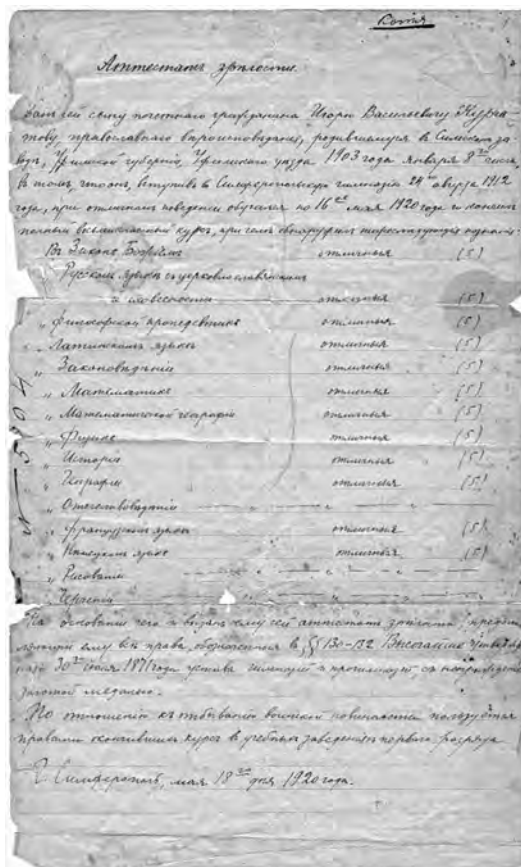 Копія
Аттестатъ зрѣлости.
Данъ сей сыну почетнаго гражданина Игорю Васильевичу Курча-
тову, православнаго вѣроисповѣданія, родившемуся в Симском за-
водѣ, Уфимской губерніи, Уфимского уѣзда 1903 года Января 8го дня,
въ томъ, что онъ, вступивъ в Симферопольскую гимназію 24го августа 1912
года, при отличномъ поведеніи обучался по 16ое мая 1920 года и кончилъ
полный восьмиклассный курсъ, при чемъ обнаружилъ нижеслѣдующія познанія:
Въ Законѣ Божіемъ отличныя (5)
Русскомъ языкѣ съ церковнославянскимъ
и словесности отличныя (5)
„ философской пропедевтикѣ отличныя (5)
„ Латинскомъ языкѣ отличныя (5)
„ Законовѣдѣніи отличныя (5)
„ Математикѣ отличныя (5)
„ Математической географіи отличныя (5)
„ Физикѣ отличныя (5)
„ Исторіи отличныя (5)
„ Географіи отличныя (5)
„ Отечествовѣдѣніи
„ французскомъ языкѣ отличныя (5)
„ Нѣмецкомъ языкѣ отличныя (5)
„ Рисованіи
„ Черченіи
На основаніи чего и выданъ ему сей аттестатъ зрѣлости, предос-
тавляющій ему всѣ права, обозначенныя в §§ 130-132 Высочайше утвержд.
30го іюля 1871 года устава гимназій и прогимназій съ награжденіем
золотой медалью.
По отношенію къ отбыванію воинской повинности пользуется
правами окончившихъ курсъ в учебныхъ заведеніяхъ перваго разряда
Г. Симферополь, мая 18го дня 1920 года.